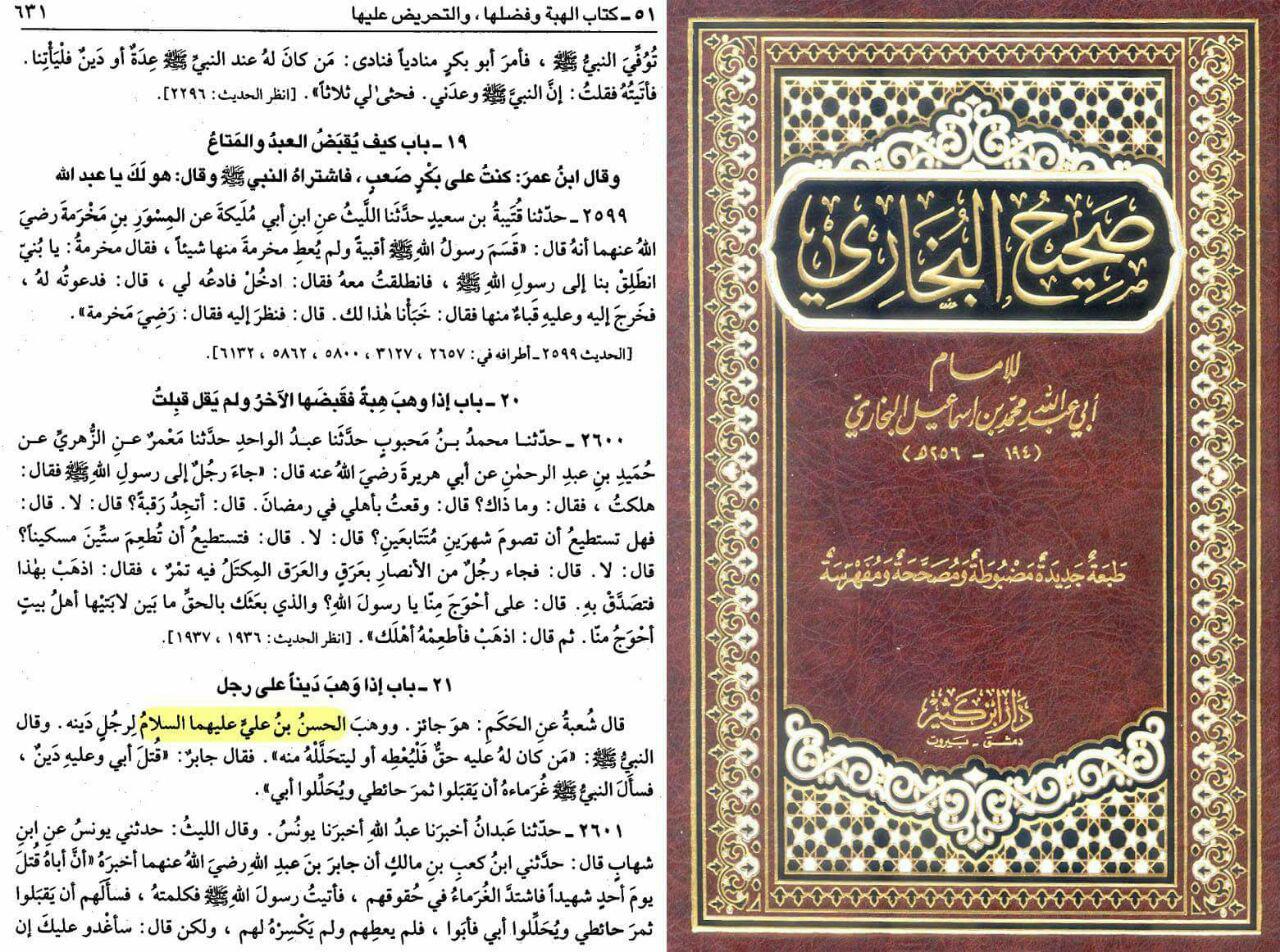 ٥١ ـ كتاب الهبة وفضلها، والتحريض عليها ٦٣١
تُوُفِّيَ النبيُّ ﷺ ، فأمرَ أبو بكرٍ منادياً فنادى: مَن كانَ لهُ عند النبيِّ ﷺ عِدَةٌ أو دَينٌ فلْيَأْتِنا.
فأتيتُهُ فقلتُ: إنَّ النبيَّ ﷺ وعدَني. فحثى لي ثلاثاً». [انظر الحديث: ٢٢٩٦].
١٩ ـ باب كيف يُقبَضُ العبدُ والمَتاعُ
وقال ابنُ عمرَ: كنتُ على بَكْرٍ صَعبٍ، فاشتراهُ النبي ﷺ وقال: هو لَكَ يا عبد الله
٢٥٩٩ ـ حدّثنا قُتَيبةُ بن سعيدٍ حدَّثَنا اللَّيثُ عنِ ابنِ أبي مُلَيكةَ عن المِسْوَرِ بنِ مَخْرَمةَ رضيَ
اللهُ عنهما أنهُ قال: «قَسَمَ رسولُ اللهِ ﷺ أقبيةً ولم يُعطِ مخرمةَ منها شيئاً ، فقال مخرمةُ: يا بُنيّ
انطَلِقْ بنا إلى رسولِ اللهِ ﷺ ، فانطلقتُ معهُ فقال: ادخُلْ فادعُه لي ، قال: فدعوتُه لهُ ،
فخَرجَ إليه وعليهِ قَباءٌ منها فقال: خَبَأْنا هٰذا لك. قال: فنظرَ إليه فقال: رَضِيَ مَخرمة».
[الحديث ٢٥٩٩ ـ أطرافه في: ٢٦٥٧ ، ٣١٢٧ ، ٥٨٠٠ ، ٥٨٦٢ ، ٦١٣٢].
٢٠ ـ باب إذا وهبَ هِبةً فقَبضَها الآخرُ ولم يَقل قبِلتُ
٢٦٠٠ ـ حدّثنا محمدُ بنُ محبوبٍ حدَّثَنا عبدُ الواحدِ حدَّثنا مَعْمرٌ عنِ الزُّهريِّ عن
حُمَيدِ بنِ عبدِ الرحمٰنِ عن أبي هريرةَ رضيَ اللهُ عنه قال: «جاءَ رجُلٌ إلى رسولِ اللهِ ﷺ فقال:
هلكتُ ، فقال: وما ذاك؟ قال: وقعتُ بأهلي في رمضانَ. قال: أتجِدُ رَقبةً؟ قال: لا. قال:
فهل تستطيعُ أن تصومَ شهرَينِ مُتَتابعَينِ؟ قال: لا. قال: فتستطيعُ أن تُطعِمَ ستِّينَ مسكيناً؟
قال: لا. قال: فجاء رجُلٌ من الأنصارِ بعَرَقٍ والعَرَق المِكتَلُ فيه تمْرٌ ، فقال: اذهَبْ بهٰذا
فتصَدَّقْ بهِ. قال: على أحْوَجَ مِنّا يا رسولَ اللهِ؟ والذي بعثَكَ بالحقِّ ما بَين لابَتَيْها أهلُ بيتٍ
أحْوَجُ منّا. ثم قال: اذهَبْ فأطعِمْهُ أهْلَك». [انظر الحديث: ١٩٣٦ ، ١٩٣٧].
٢١ ـ باب إذا وَهبَ دَيناً على رجل
قال شُعبةُ عنِ الحَكَمِ: هو جائز. ووهبَ الحسنُ بنُ عليٍّ عليهما السلامُ لِرجُلٍ دَينه. وقال
النبيُّ ﷺ: «مَن كان لهُ عليه حقٌّ فَلْيُعْطِه أو ليتحَلَّلْهُ منه». فقال جابرٌ: «قُتلَ أبي وعليهِ دَينٌ ،
فسألَ النبيُّ ﷺ غُرَماءهُ أن يَقبَلوا ثمرَ حائطي ويُحَلِّلوا أبي».
٢٦٠١ ـ حدّثنا عَبدانُ أخبرَنا عبدُ اللهِ أخبرَنا يونُسُ. وقال الليثُ: حدثني يونسُ عنِ ابنِ
شهابٍ قال: حدَّثني ابنُ كعبِ بنِ مالكٍ أن جابرَ بنَ عبدِ اللهِ رضيَ اللهُ عنهما أخبرَهُ «أنَّ أباهُ قُتلَ
يومَ أحدٍ شهيداً فاشتدَّ الغُرَماءُ في حُقوقهم ، فأتيتُ رسولَ اللهِ ﷺ فكلمتُه ، فسألَهم أن يَقبَلوا
ثمرَ حائطي ويُحلِّلوا أبي فأبَوا ، فلم يعطِهم ولم يَكْسِرْهُ لهم ، ولكن قال: سأغْدو عليكَ إن
صَحِيحُ البُخَارِي
للإمام
أبي عبد الله محمد بن إسماعيل البخاري
(١٩٤ - ٢٥٦ هـ)
طبعة جديدة مضبوطة ومصححة ومفهرسة
دار ابن كثير
دمشق - بيروت